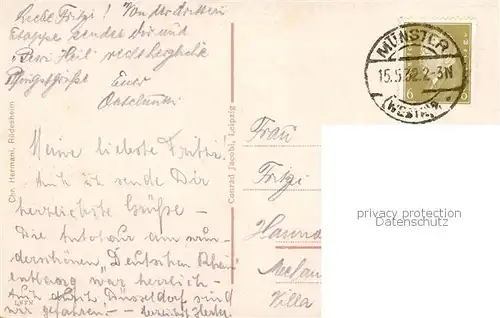 Liebe Fritzi! Von der dritten
Etappe sendet Dir und
"Berg Heil" recht herzliche
Pfingstgrüsse
Euer
Meine liebste Fritzi.
Auch ich sende Dir
herzlichste Grüße –
Die Autotour am wun-
derschönen "Deutschen Rhein"
entlang war herrlich –
Auch durch Düsseldorf sind
wir gefahren. –
Chr. Hermani, Rüdesheim
Conrad Jacobi, Leipzig
MÜNSTER
15.5.32.2-3N
(WESTF.)
6 6
Frau
Fritzi
Villa
privacy protection
Datenschutz